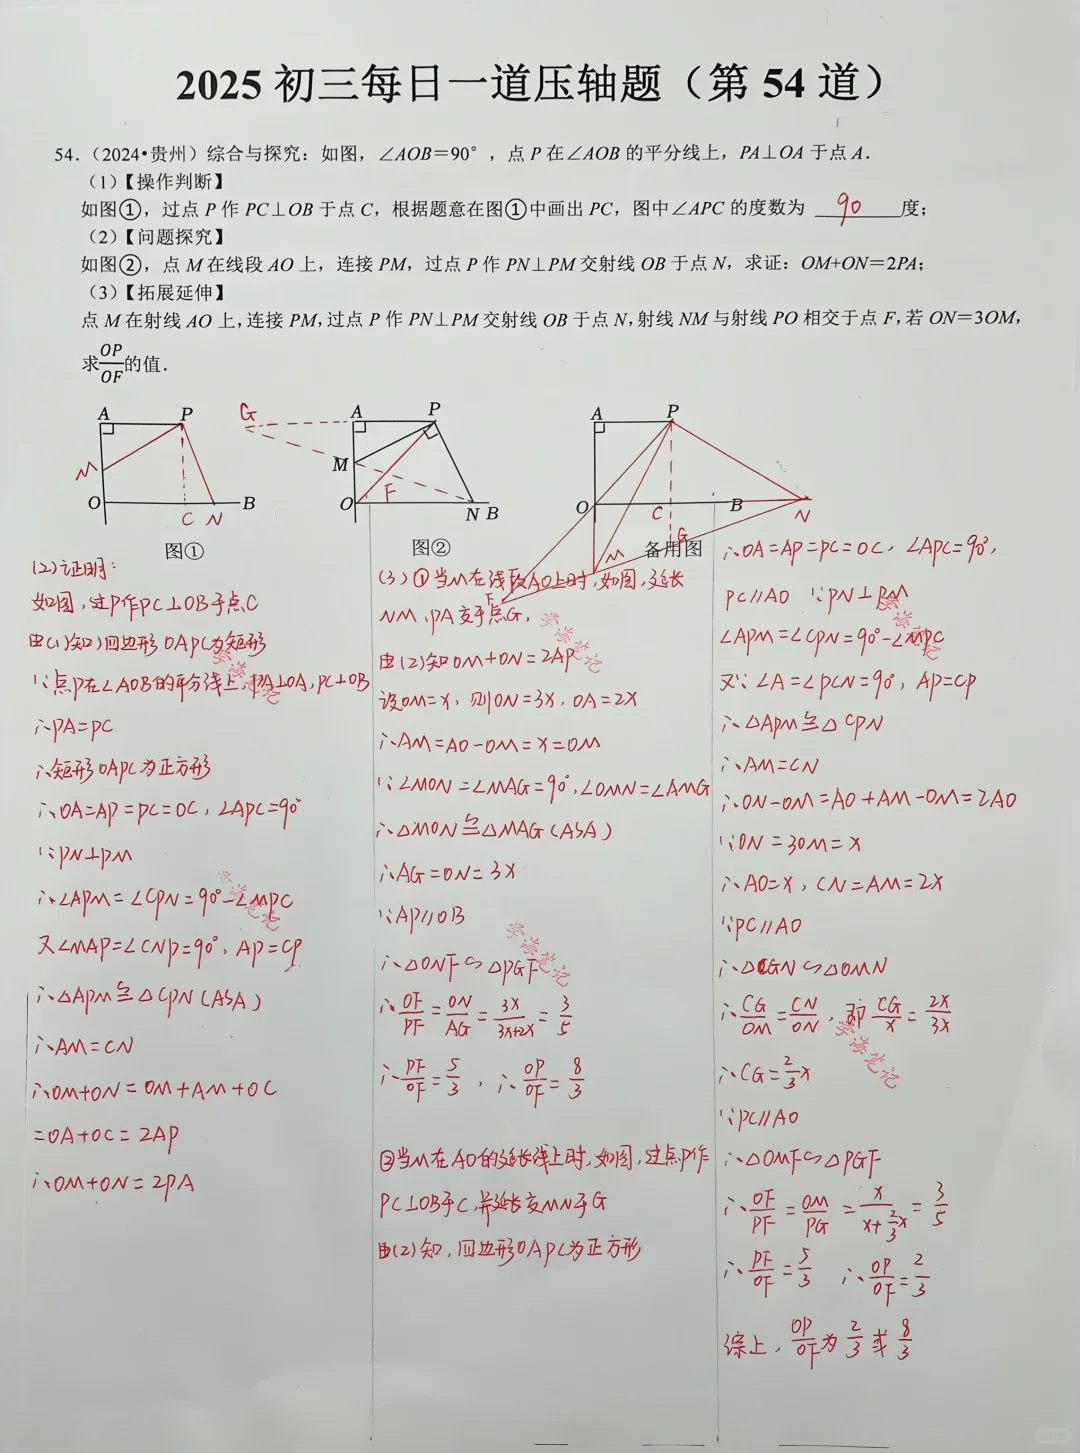 2025 初三每日一道压轴题（第 54 道）
54.（2024•贵州）综合与探究：如图，∠AOB＝90°，点 P 在∠AOB 的平分线上，PA⊥OA 于点 A．
（1）【操作判断】
如图①，过点 P 作 PC⊥OB 于点 C，根据题意在图①中画出 PC，图中∠APC 的度数为 90 度；
（2）【问题探究】
如图②，点 M 在线段 AO 上，连接 PM，过点 P 作 PN⊥PM 交射线 OB 于点 N，求证：OM+ON＝2PA；
（3）【拓展延伸】
点 M 在射线 AO 上，连接 PM，过点 P 作 PN⊥PM 交射线 OB 于点 N，射线 NM 与射线 PO 相交于点 F，若 ON＝3OM，
求OP/OF的值．
A P M O C N B
图①
G A P M O F N B
图②
A P O C B N G M F
备用图
(2)证明：
如图，过P作PC⊥OB于点C
由(1)知)四边形OAPC为矩形
∵点P在∠AOB的平分线上，PA⊥OA，PC⊥OB
∴PA=PC
∴矩形OAPC为正方形
∴OA=AP=PC=OC，∠APC=90°
∵PN⊥PM
∴∠APM=∠CPN=90°-∠MPC
又∠MAP=∠CNP=90°，AP=CP
∴△APM≌△CPN(ASA)
∴AM=CN
∴OM+ON=OM+AM+OC
=OA+OC=2AP
∴OM+ON=2PA
(3)①当M在线段AO上时，如图，延长
NM、PA交于点G，
由(2)知OM+ON=2AP
设OM=x，则ON=3x，OA=2x
∴AM=AO-OM=x=OM
∵∠MON=∠MAG=90°，∠OMN=∠AMG
∴△MON≌△MAG(ASA)
∴AG=ON=3x
∵AP∥OB
∴△ONF∽△PGF
∴OF/PF=ON/AG=3x/(3x+2x)=3/5
∴PF/OF=5/3，∴OP/OF=8/3
②当M在AO的延长线上时，如图，过点P作
PC⊥OB于C，并延长交MN于G
由(2)知，四边形OAPC为正方形
∴OA=AP=PC=OC，∠APC=90°，
PC∥AO ∵PN⊥PM
∠APM=∠CPN=90°-∠MPC
又∵∠A=∠PCN=90°，AP=CP
∴△APM≌△CPN
∴AM=CN
∴ON-OM=AO+AM-OM=2AO
∵ON=3OM=x
∴AO=x，CN=AM=2x
∵PC∥AO
∴△CGN∽△OMN
∴CG/OM=CN/ON，即CG/x=2x/3x
∴CG=2/3x
∵PC∥AO
∴△OMF∽△PGF
∴OF/PF=OM/PG=x/(x+2/3x)=3/5
∴PF/OF=5/3 ∴OP/OF=2/3
综上，OP/OF为2/3或8/3
学海笔记
学海笔记
学海笔记
学海笔记
学海笔记
学海笔记